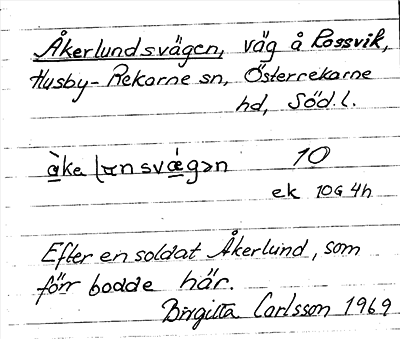 Åkerlundsvägen, väg å Rossvik,
Husby-Rekarne sn, Österrekarne
hd, Söd. l.
10
ek 10G 4h
Efter en soldat Åkerlund, som
förr bodde här.
Birgitta Carlsson 1969